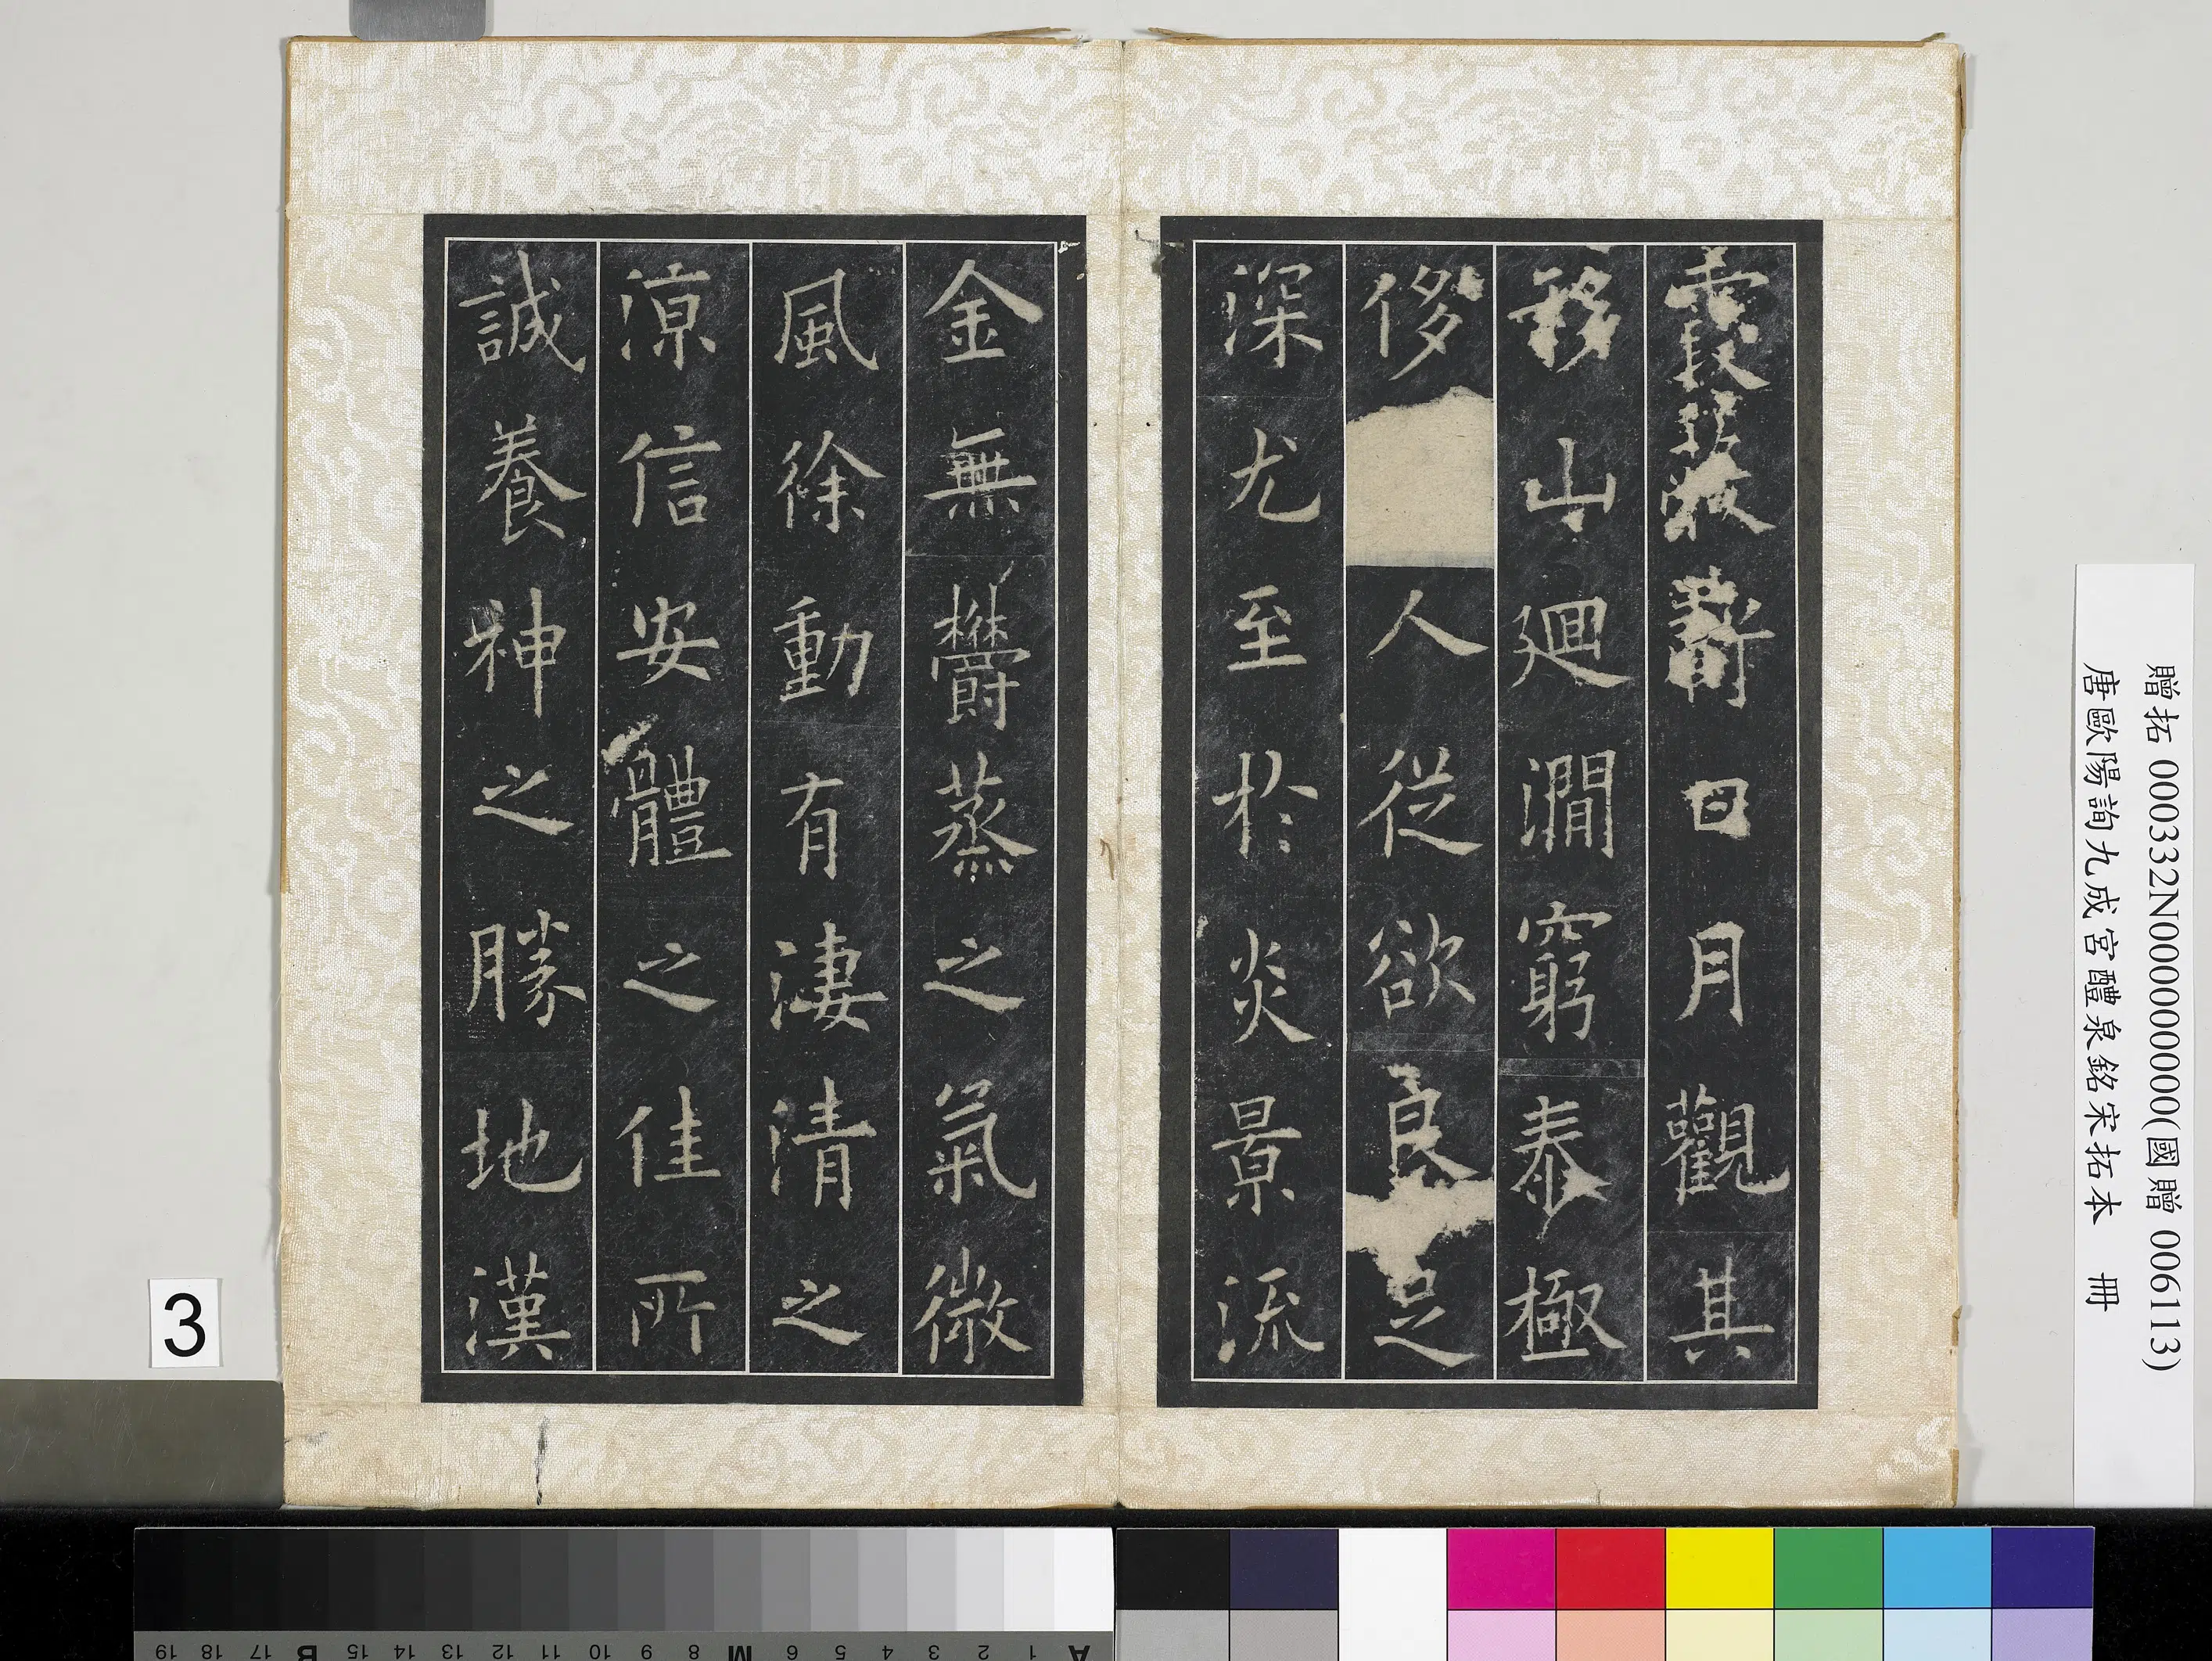 霞蔽虧日月觀其
移山廻澗窮泰極
侈人從欲良足
深尤至於炎景流
金無欝蒸之氣微
風徐動有淒清之
涼信安體之佳所
誠養神之勝地漢
贈拓 000332N000000000(國贈 006113)
唐歐陽詢九成宮醴泉銘宋拓本 冊
3
A 1 2 3 4 5 6 7 M 8 9 10 11 12 13 14 15 B 17 18 19